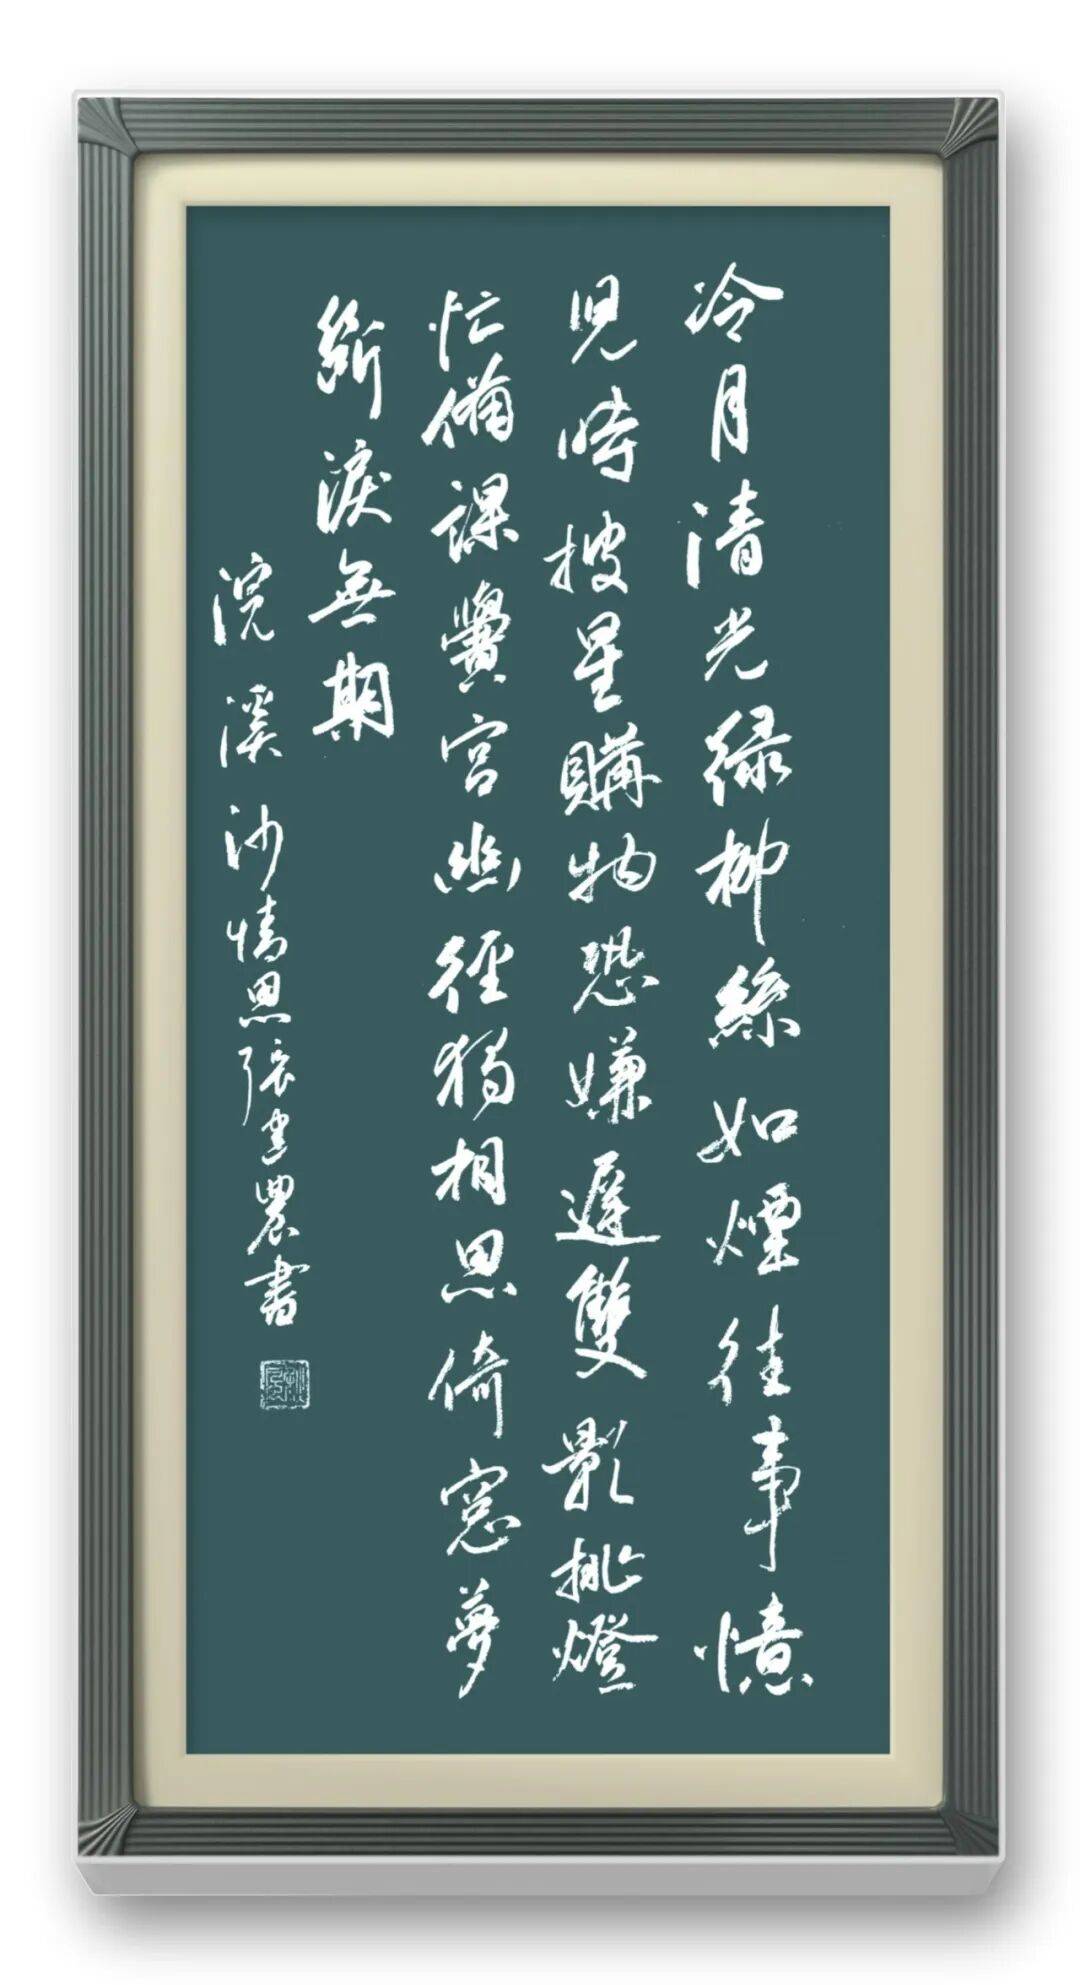 冷月清光绿柳絲如煙往事憶
兒時披星購物恐嫌遲雙影挑燈
忙備課黌宮幽徑獨相思倚窓夢
斷淚無期
浣溪沙情思張建農書